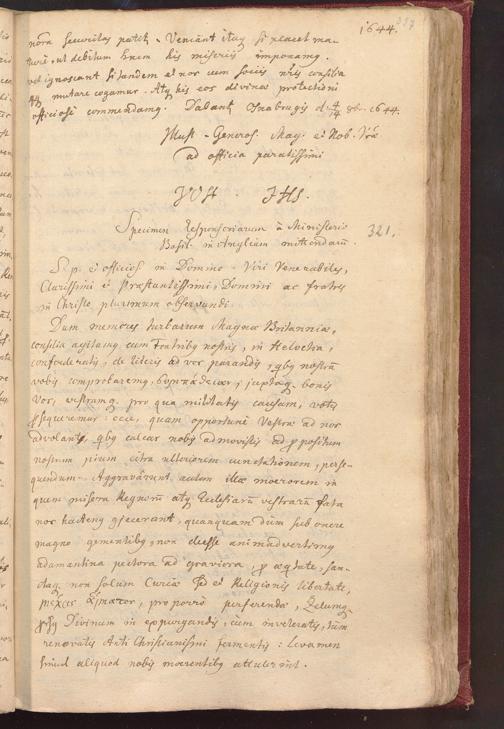 1644. 
nõra securitas patet. Veniant itaq si placet ma-
turè, ut debitum finem his miseriis imponamq.
vel ignoscant si tandem et nos cum sociis nr̃is consilia
mutare cogamur. Atq his eos divinæ protectioni
officiosè commendamq. Dabant Osnabrugis d. 4/14 8br. 1644.
Illust. Generos. Mag. et Nob. Vrã
ad officia paratissimi
JOH IHS.
Specimen Responsoriarum à Ministerio 321.
Basil. in Angliam mittendarū.
S. p. et officios in Domino. Viri Venerabiles,
Clarissimi et Præstantissimi, Domini ac fratres
in Christo plurimum observandi.
Dum memores turbarum Magnæ Britanniæ,
consilia agitamq cum fratribq nostris, in Helvetia,
confœderatis, de literis ad vos parandis, qbq nostrã
vobis comprobaremq, bonis
vos, vestramq, pro qua militatis causam, votis
prosequeremur: ecce, quam opportunè vestræ ad nos
advolant, qbq calcar nobis admovistis ad propositum
nostrum pium citra ulteriorem cunctationem, perse-
quendum. Aggravârunt autem illæ mœrorem in
quem misera Regnorū atq Ecclesiarū vestrarū fata
nos hacteng cjecerant, quanquam dum sub onere
magno gementibq, non deesse animadvertimq
adamantina pectora ad graviora, p æqtate, san-
ctaq non solum Curiæ sed et Religionis libertate,
pro porrò perferenda, Zelumq
Divinum in expurgandis, cùm inveteratis, tùm
renovatis Anti Christianismi fermentis: Levamen
simul aliquod nobis mœrentibq attulerint.